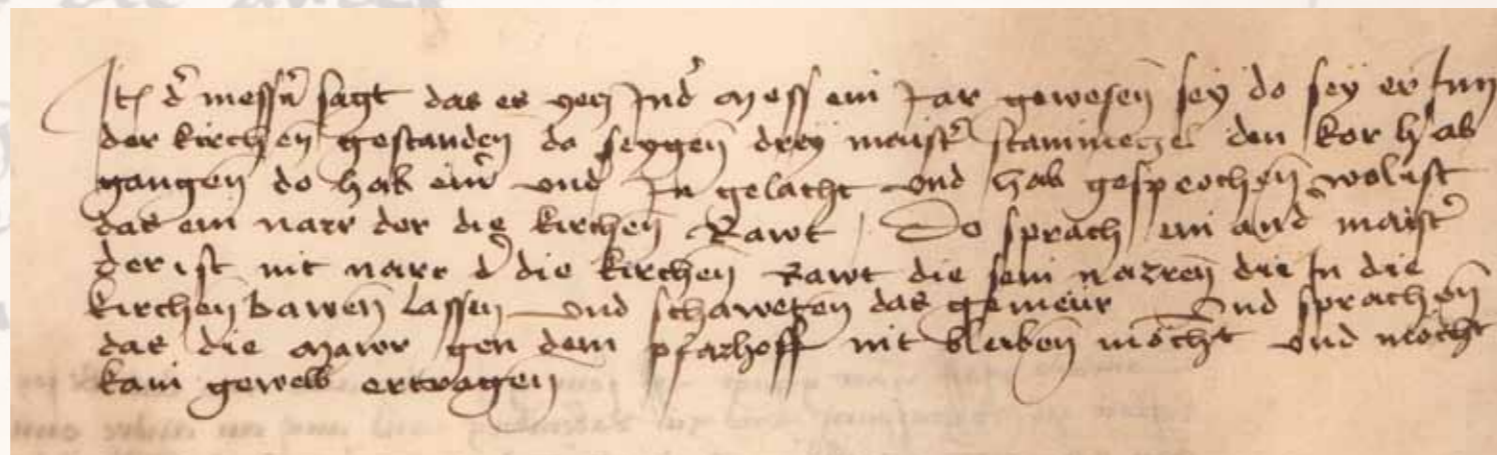 It̄ d̓ messn̓ sagt das es yecz Ind̓ mess ein Jar gewesen̄ sey do sey er Inn
der kirchen̄ gestanden do seygen drey maist̓ stainmeczel den kor h̓ab
gangen̄ do hab ein̓ und̓ In gelacht und hab gesprochen̄ wol ist
das ein narr der die kirchen̄ Bawt / Do sprach ein and̓ maist̓
der ist nit narr d̓ die kirchen̄ Bawt die sein narren̄ die In die
kirchen̄ bawen̄ lassen und schaweten das gemeur und sprachen
das die mawr gen dem pfarhoff nit bleiben̄ möcht und möcht
kain gewelb ertragen